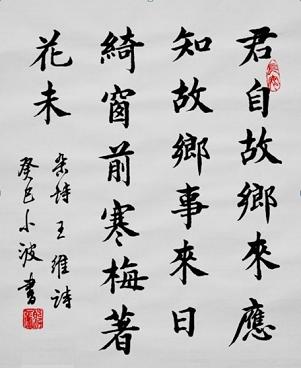 君自故鄉來應
知故鄉事來日
綺窗前寒梅著
花未
杂詩王維詩
癸巳小波書